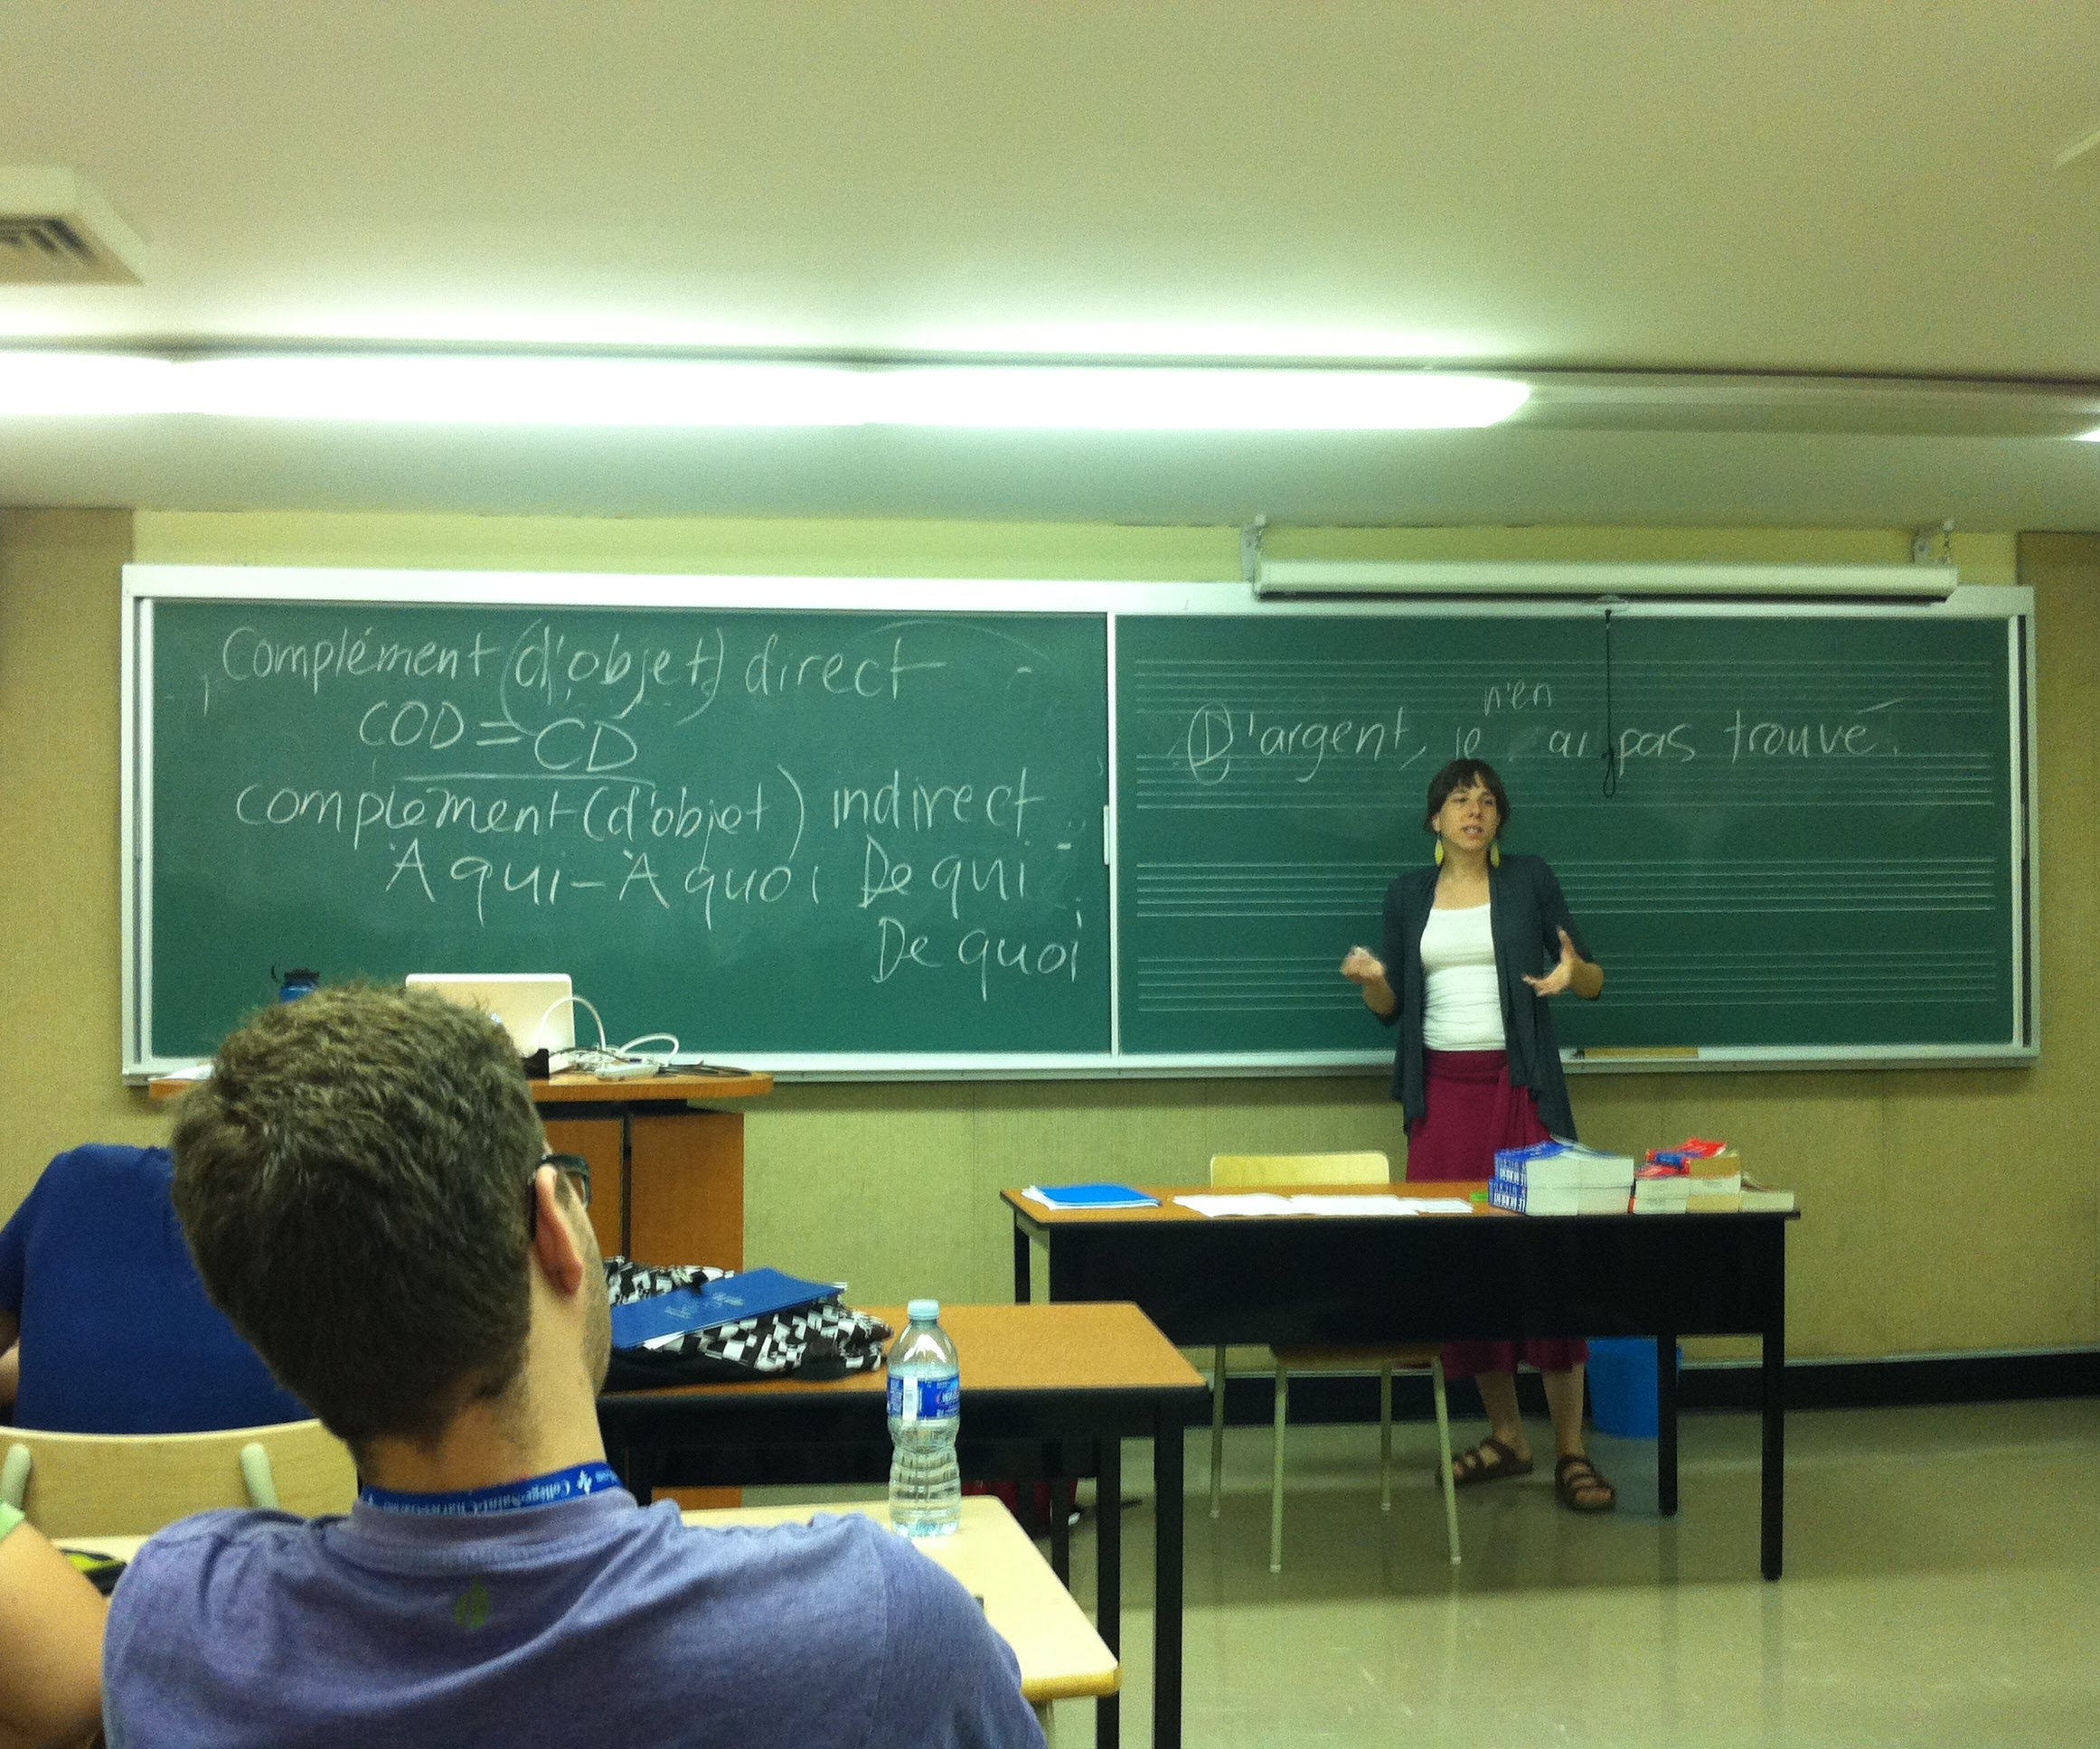 Complément (d'objet) direct
COD = CD
complément (d'objet) indirect
À qui - À quoi De qui -
De quoi
n'en
D'argent, je ai pas trouvé.